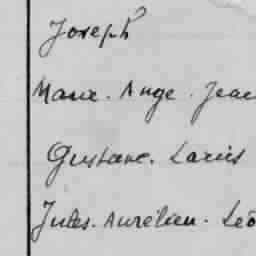 Joseph
Marie. Ange. Jean
Gustave. Louis
Jules. Aurélien. Léo